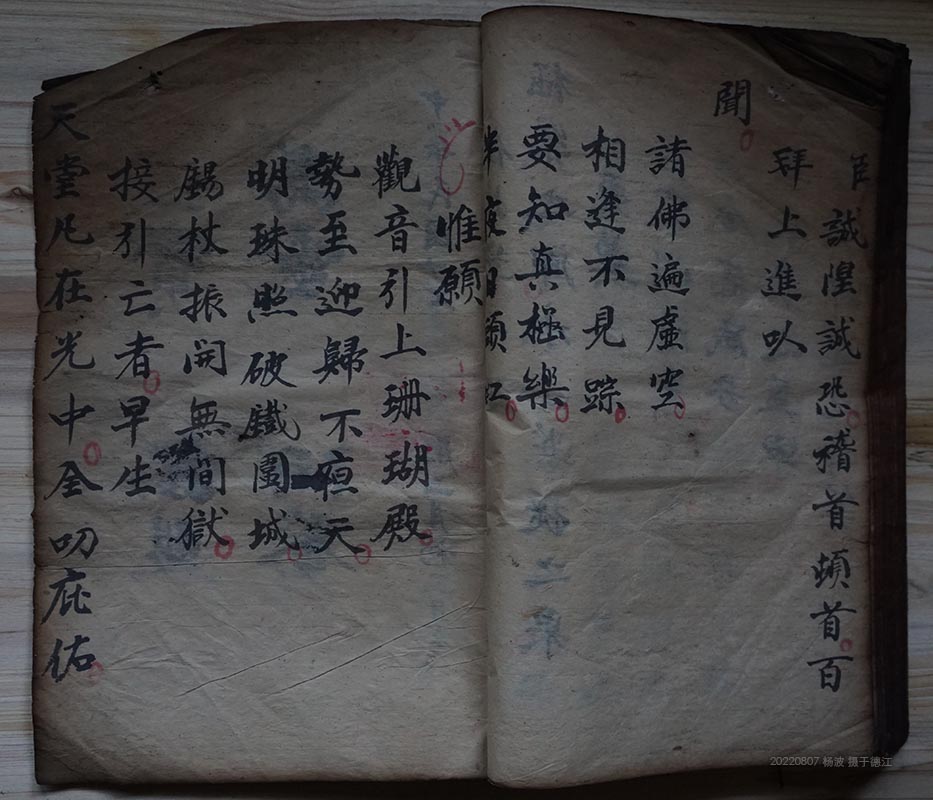 臣
誠惶誠恐稽首頓首百
拜上進以
聞
諸佛遍虛空
相逢不見踪
要知真極樂
半夜日頭紅
惟願
觀音引上珊瑚殿
勢至迎歸不亱天
明珠照破鐵圍城
錫杖振開無間獄
接引亡者早生
天堂凡在光中全叨庇佑
20220807 杨波 摄于德江